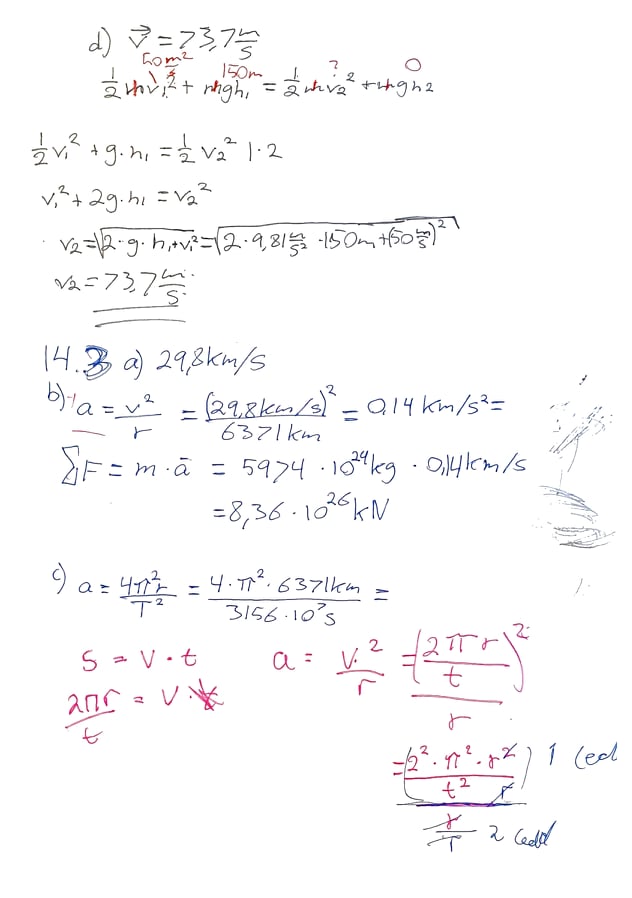 d) v⃗ = 73,7 m/s
50 m² 150m ? 0
½ mv₁² + mgh₁ = ½ mv₂² + mgh2
½ v₁² + g·h₁ = ½ v₂² | · 2
v₁² + 2g·h₁ = v₂²
v₂ = √2·g·h₁+v₁² = √2·9,81 m/s² · 150m + (50 m/s)²
v₂ = 73,7 m/s
14.3 a) 29,8 km/s
b) a = v²/r = (29,8 km/s)²/6371 km = 0,14 km/s² =
∑F = m·a = 5974 · 10²⁴ kg · 0,14 km/s
= 8,36 · 10²⁶ kN
c) a = 4π²r/T² = 4·π²·6371km/3156·10⁷s =
s = v · t a = v²/r = (2πr/t)²/r
2πr/t = v · t
= (2²·π²·r²/t² r) 1 ledd
r/1 2 ledd